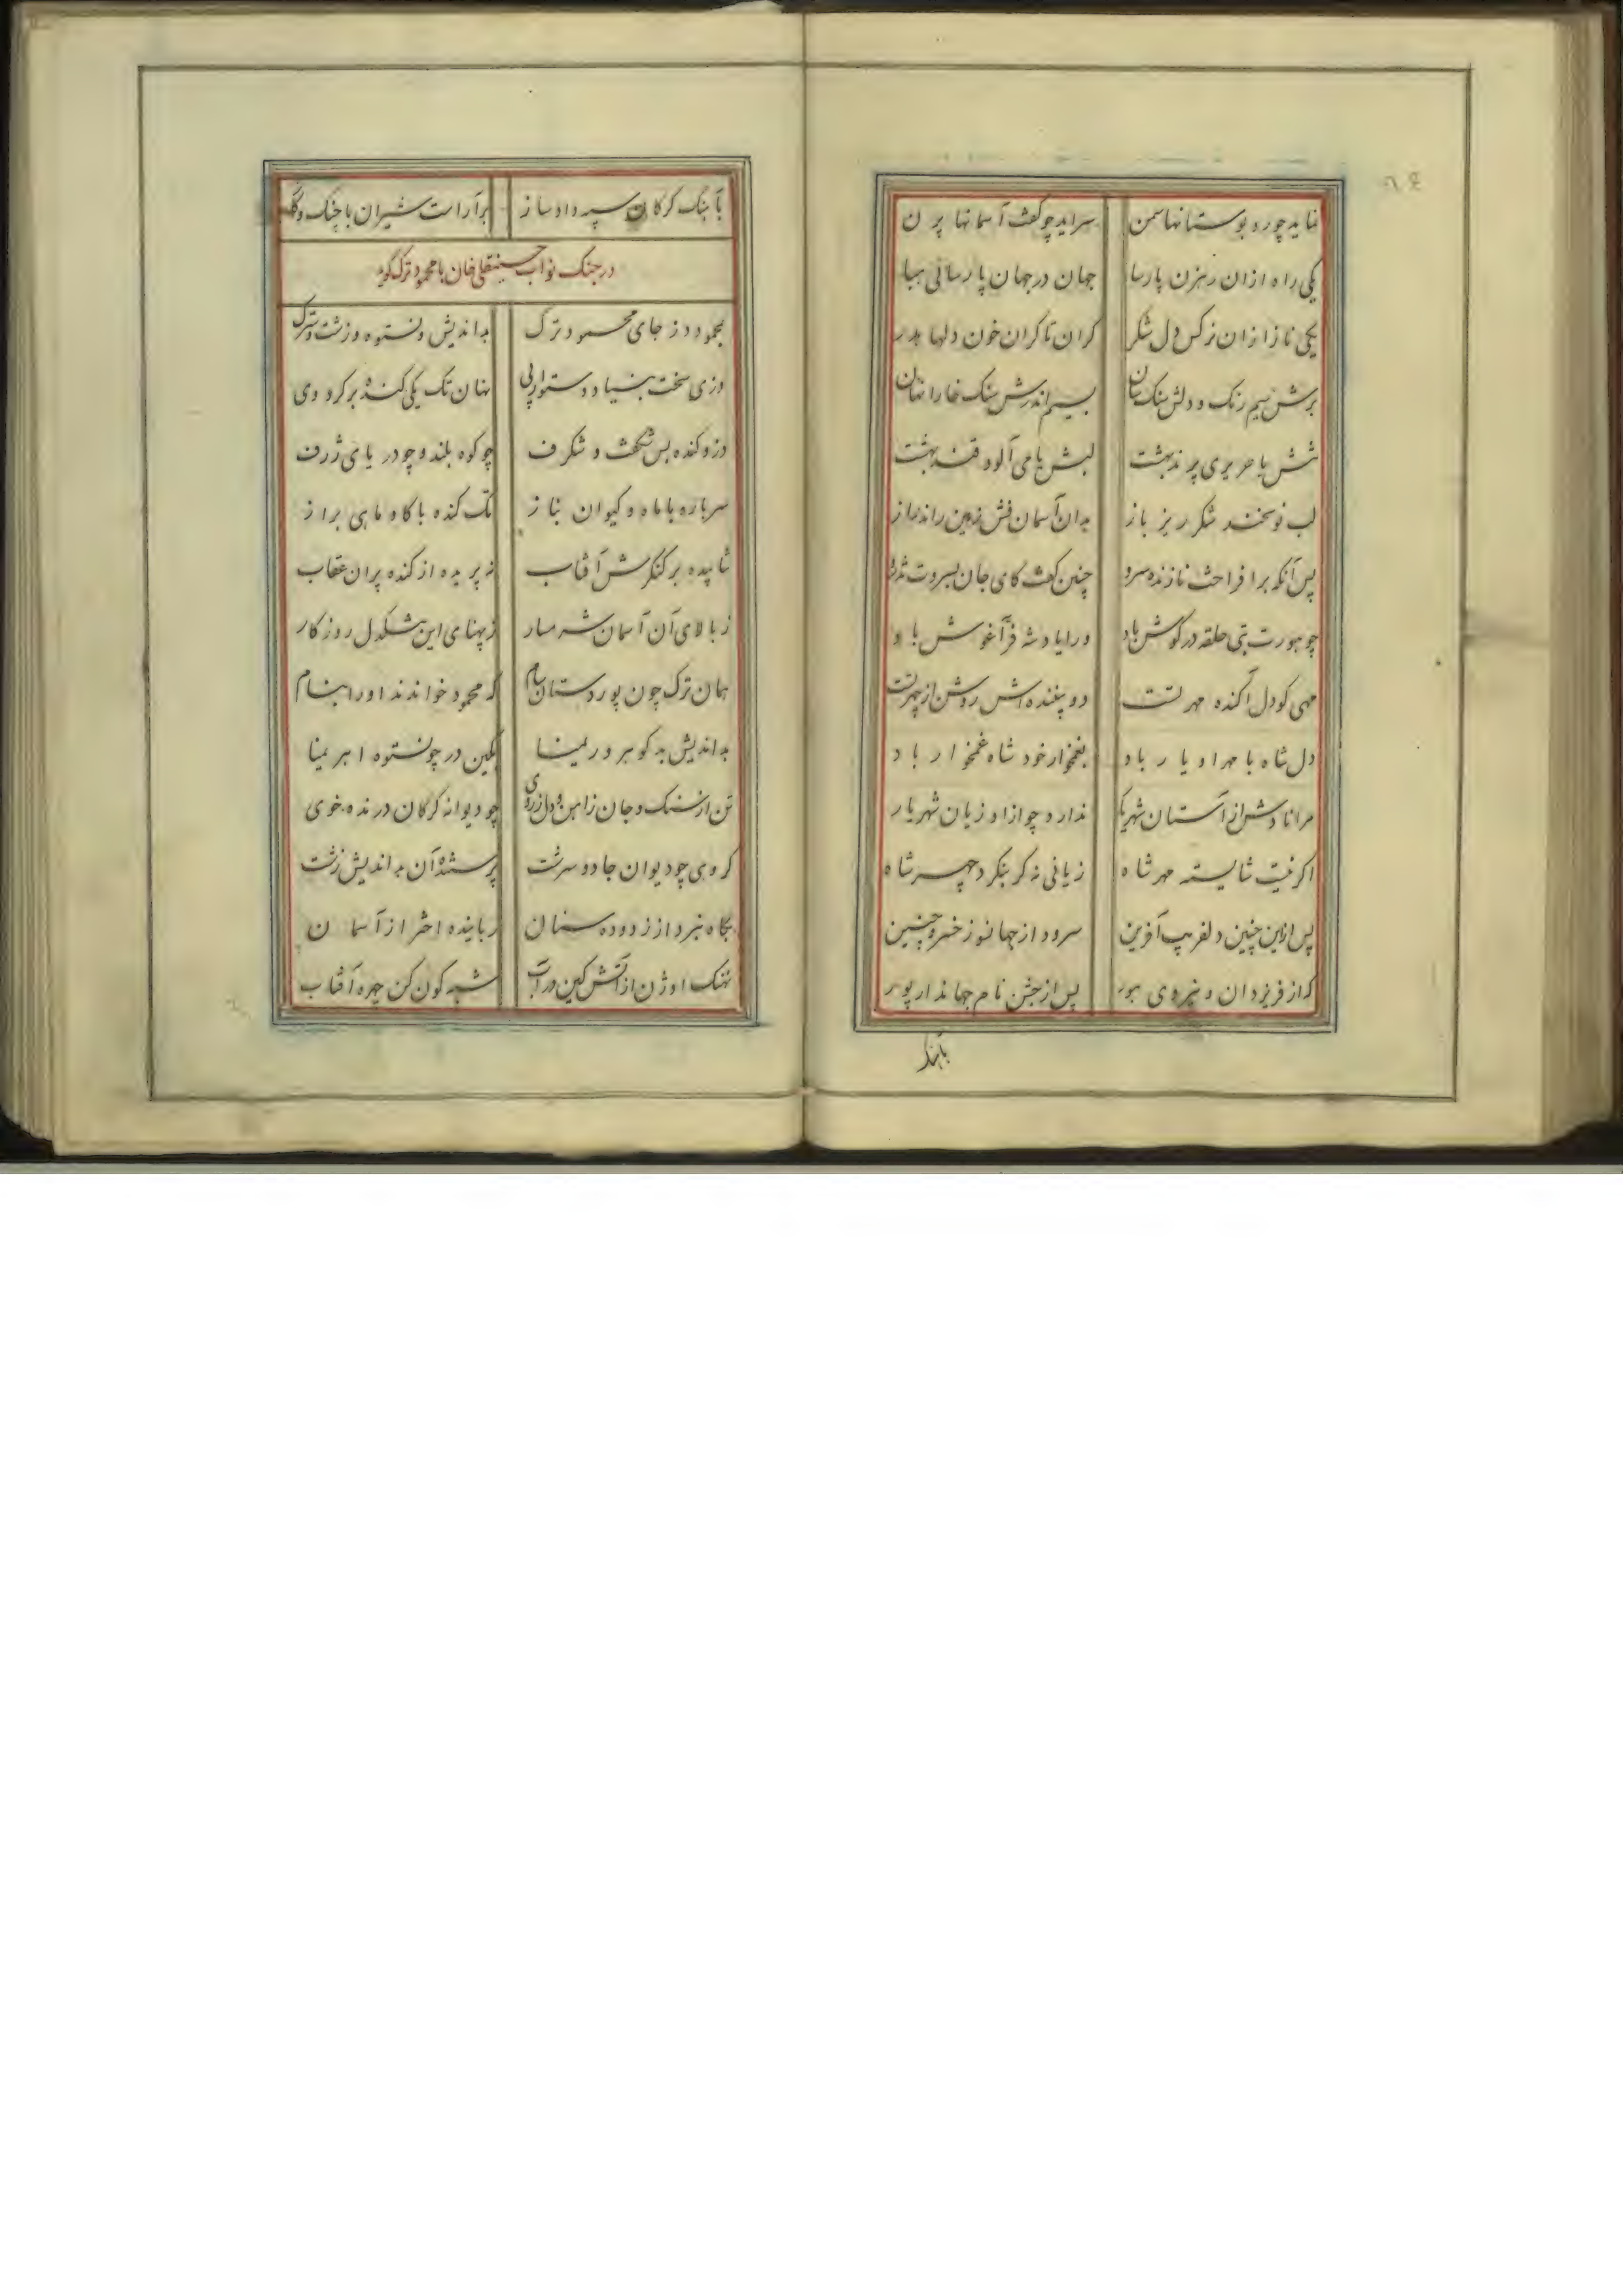 نماید چو رو بوستانها سمن سراید چو گفت آسمانها پرن
یکی راه ازان رهزن پارسا جهان در جهان پارسائی هبا
یکی ناز ازان نرکس دل شکر کران تا کران خون دلها هدر
برش سیم رنک و دلش سنک سان بسیم اندرش سنک خارا نهان
تنش با حریری پرند بهشت لبش با می آلود قند بهشت
لب نوشخند شکر ریز باز بدان آسمان فش زمین راند راز
پس آنکه برافراخت نازنده سرو چنین کفت کای جان بسروت تذرو
چو هورت بتی حلقه در کوش باد ورا یاد شه فر آغوش باد
مهی کو دل آکنده مهر تست دو بیننده اش روشن از چهر تست
دل شاه با مهر او یار باد بغمخوار خود شاه غمخوار باد
مرانا دش از آستان شهریار ندارد چو ازاو زیان شهریار
اکر نیست شایسته مهر شاه زیانی نه کر بنکرد چهر شاه
پس ازاین چنین دلفریب آفرین سرود از جهانسوز خسرو چنین
که از فر یزدان و نیروی هور پس از جشن نام جهاندار پور
بآهنک
بآهنک کرکان سپه داد ساز برآراست شیران با چنک و
در جنک نواب حسینقلی خان با محمود ترک کوید
بمحمود دز جای محمود ترک بداندیش و نستوه و زشت و سترک
دزی سخت بنیاد و ستوار پی نهان تک یکی کنده بر کرد وی
دز و کنده بس شکفت و شکرف چو کوه بلند و چو دریای ژرف
سر باره با ماه و کیوان بناز تک کنده با کاو ماهی براز
نتابیده بر کنکرش آفتاب نپریده از کنده پران عقاب
ز بالای آن آسمان شرمسار ز پهنای این تنکدل روزکار
همان ترک چون پور دستان سام که محمود خواندند او را بنام
بداندیش بد کوهر و ریمنا بکین در چو نستوه اهریمنا
تن از سنک و جان ز آهن و دل ز روی چو دیوانه کرکان درنده خوی
کروهی چو دیوان جادو سرشت پرستنده آن بداندیش زشت
بکاه نبرد از زدوده سنان رباینده اختر از آسمان
نهنک اوژن از آتش کین در آب شبه کون کن چهره آفتاب